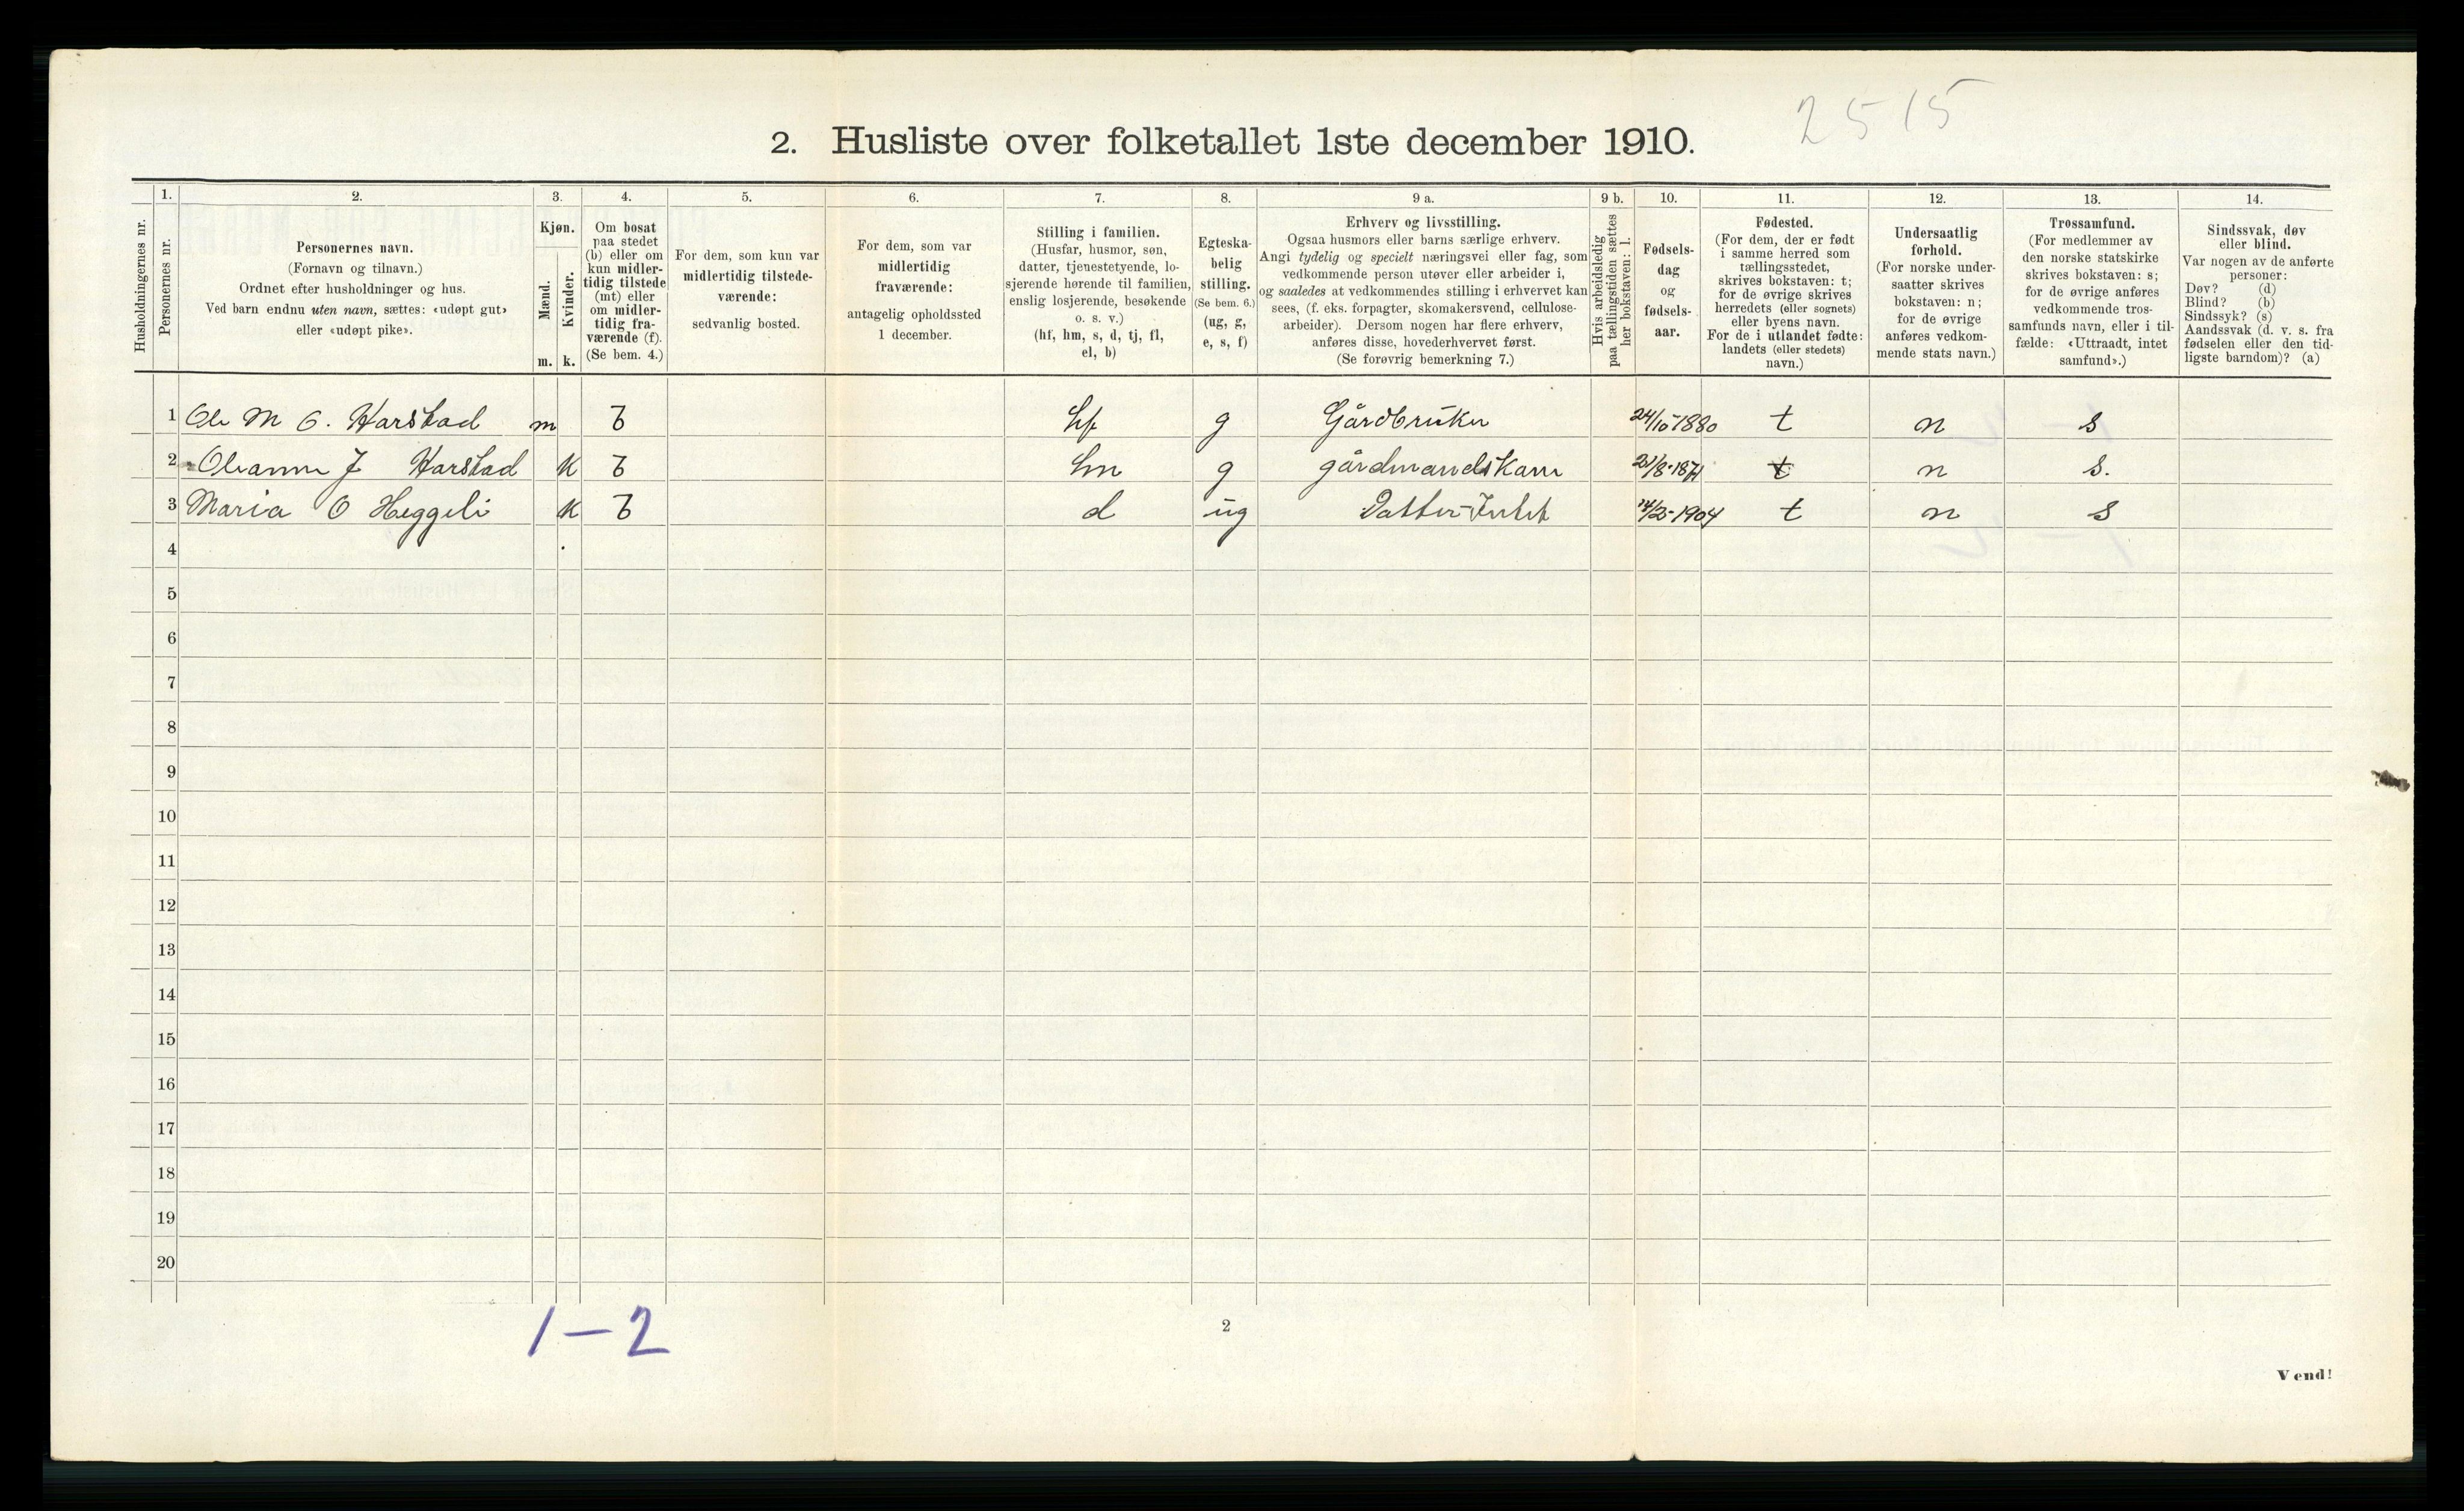 2515
2. Husliste over folketallet 1ste december 1910.
1. 2. 3. 4. 5. 6. 7. 8. 9 a. 9 b. 10. 11. 12. 13. 14.
Husholdningernes nr.
Personernes nr.
Personernes navn.
(Fornavn og tilnavn.)
Ordnet efter husholdninger og hus.
Ved barn endnu uten navn, sættes: «udøpt gut»
eller «udøpt pike».
Kjøn.
Mænd.
Kvinder.
m. k.
Om bosat
paa stedet
(b) eller om
kun midler-
tidig tilstede
(mt) eller
om midler-
tidig fra-
værende (f).
(Se bem. 4.)
For dem, som kun var
midlertidig tilstede-
værende:
sedvanlig bosted.
For dem, som var
midlertidig
fraværende:
antagelig opholdssted
1 december.
Stilling i familien.
(Husfar, husmor, søn,
datter, tjenestetyende, lo-
sjerende hørende til familien,
enslig losjerende, besøkende
o. s. v.)
(hf, hm, s, d, tj, fl,
el, b)
Egteska-
belig
stilling.
(Se bem. 6.)
(ug, g,
e, s, f)
Erhverv og livsstilling.
Ogsaa husmors eller barns særlige erhverv.
Angi tydelig og specielt næringsvei eller fag, som
vedkommende person utøver eller arbeider i,
og saaledes at vedkommendes stilling i erhvervet kan
sees, (f. eks. forpagter, skomakersvend, cellulose-
arbeider). Dersom nogen har flere erhverv,
anføres disse, hovederhvervet først.
(Se forøvrig bemerkning 7.)
Hvis arbeidsledig
paa tællingstiden sættes
her bokstaven: l.
Fødsels-
dag
og
fødsels-
aar.
Fødested.
(For dem, der er født
i samme herred som
tællingsstedet,
skrives bokstaven: t;
for de øvrige skrives
herredets (eller sognets)
eller byens navn.
For de i utlandet fødte:
landets (eller stedets)
navn.)
Undersaatlig
forhold.
(For norske under-
saatter skrives
bokstaven: n;
for de øvrige
anføres vedkom-
mende stats navn.)
Trossamfund.
(For medlemmer av
den norske statskirke
skrives bokstaven: s;
for de øvrige anføres
vedkommende tros-
samfunds navn, eller i til-
fælde: «Uttraadt, intet
samfund».)
Sindssvak, døv
eller blind.
Var nogen av de anførte
personer:
Døv? (d)
Blind? (b)
Sindssyk? (s)
Aandssvak (d. v. s. fra
fødselen eller den tid-
ligste barndom)? (a)
1 Ole M O. Harstad m b hf g Gårdbruker 24/10-1880 t n s
2 Oleanna J Harstad k b hm g gårdmandskone 1871 t n s.
3 Maria O Heggeli k b d ug Datter 1904 t n s
4
5
6
7
8
9
10
11
12
13
14
15
16
17
18
19
20
1-2
2
Vend!